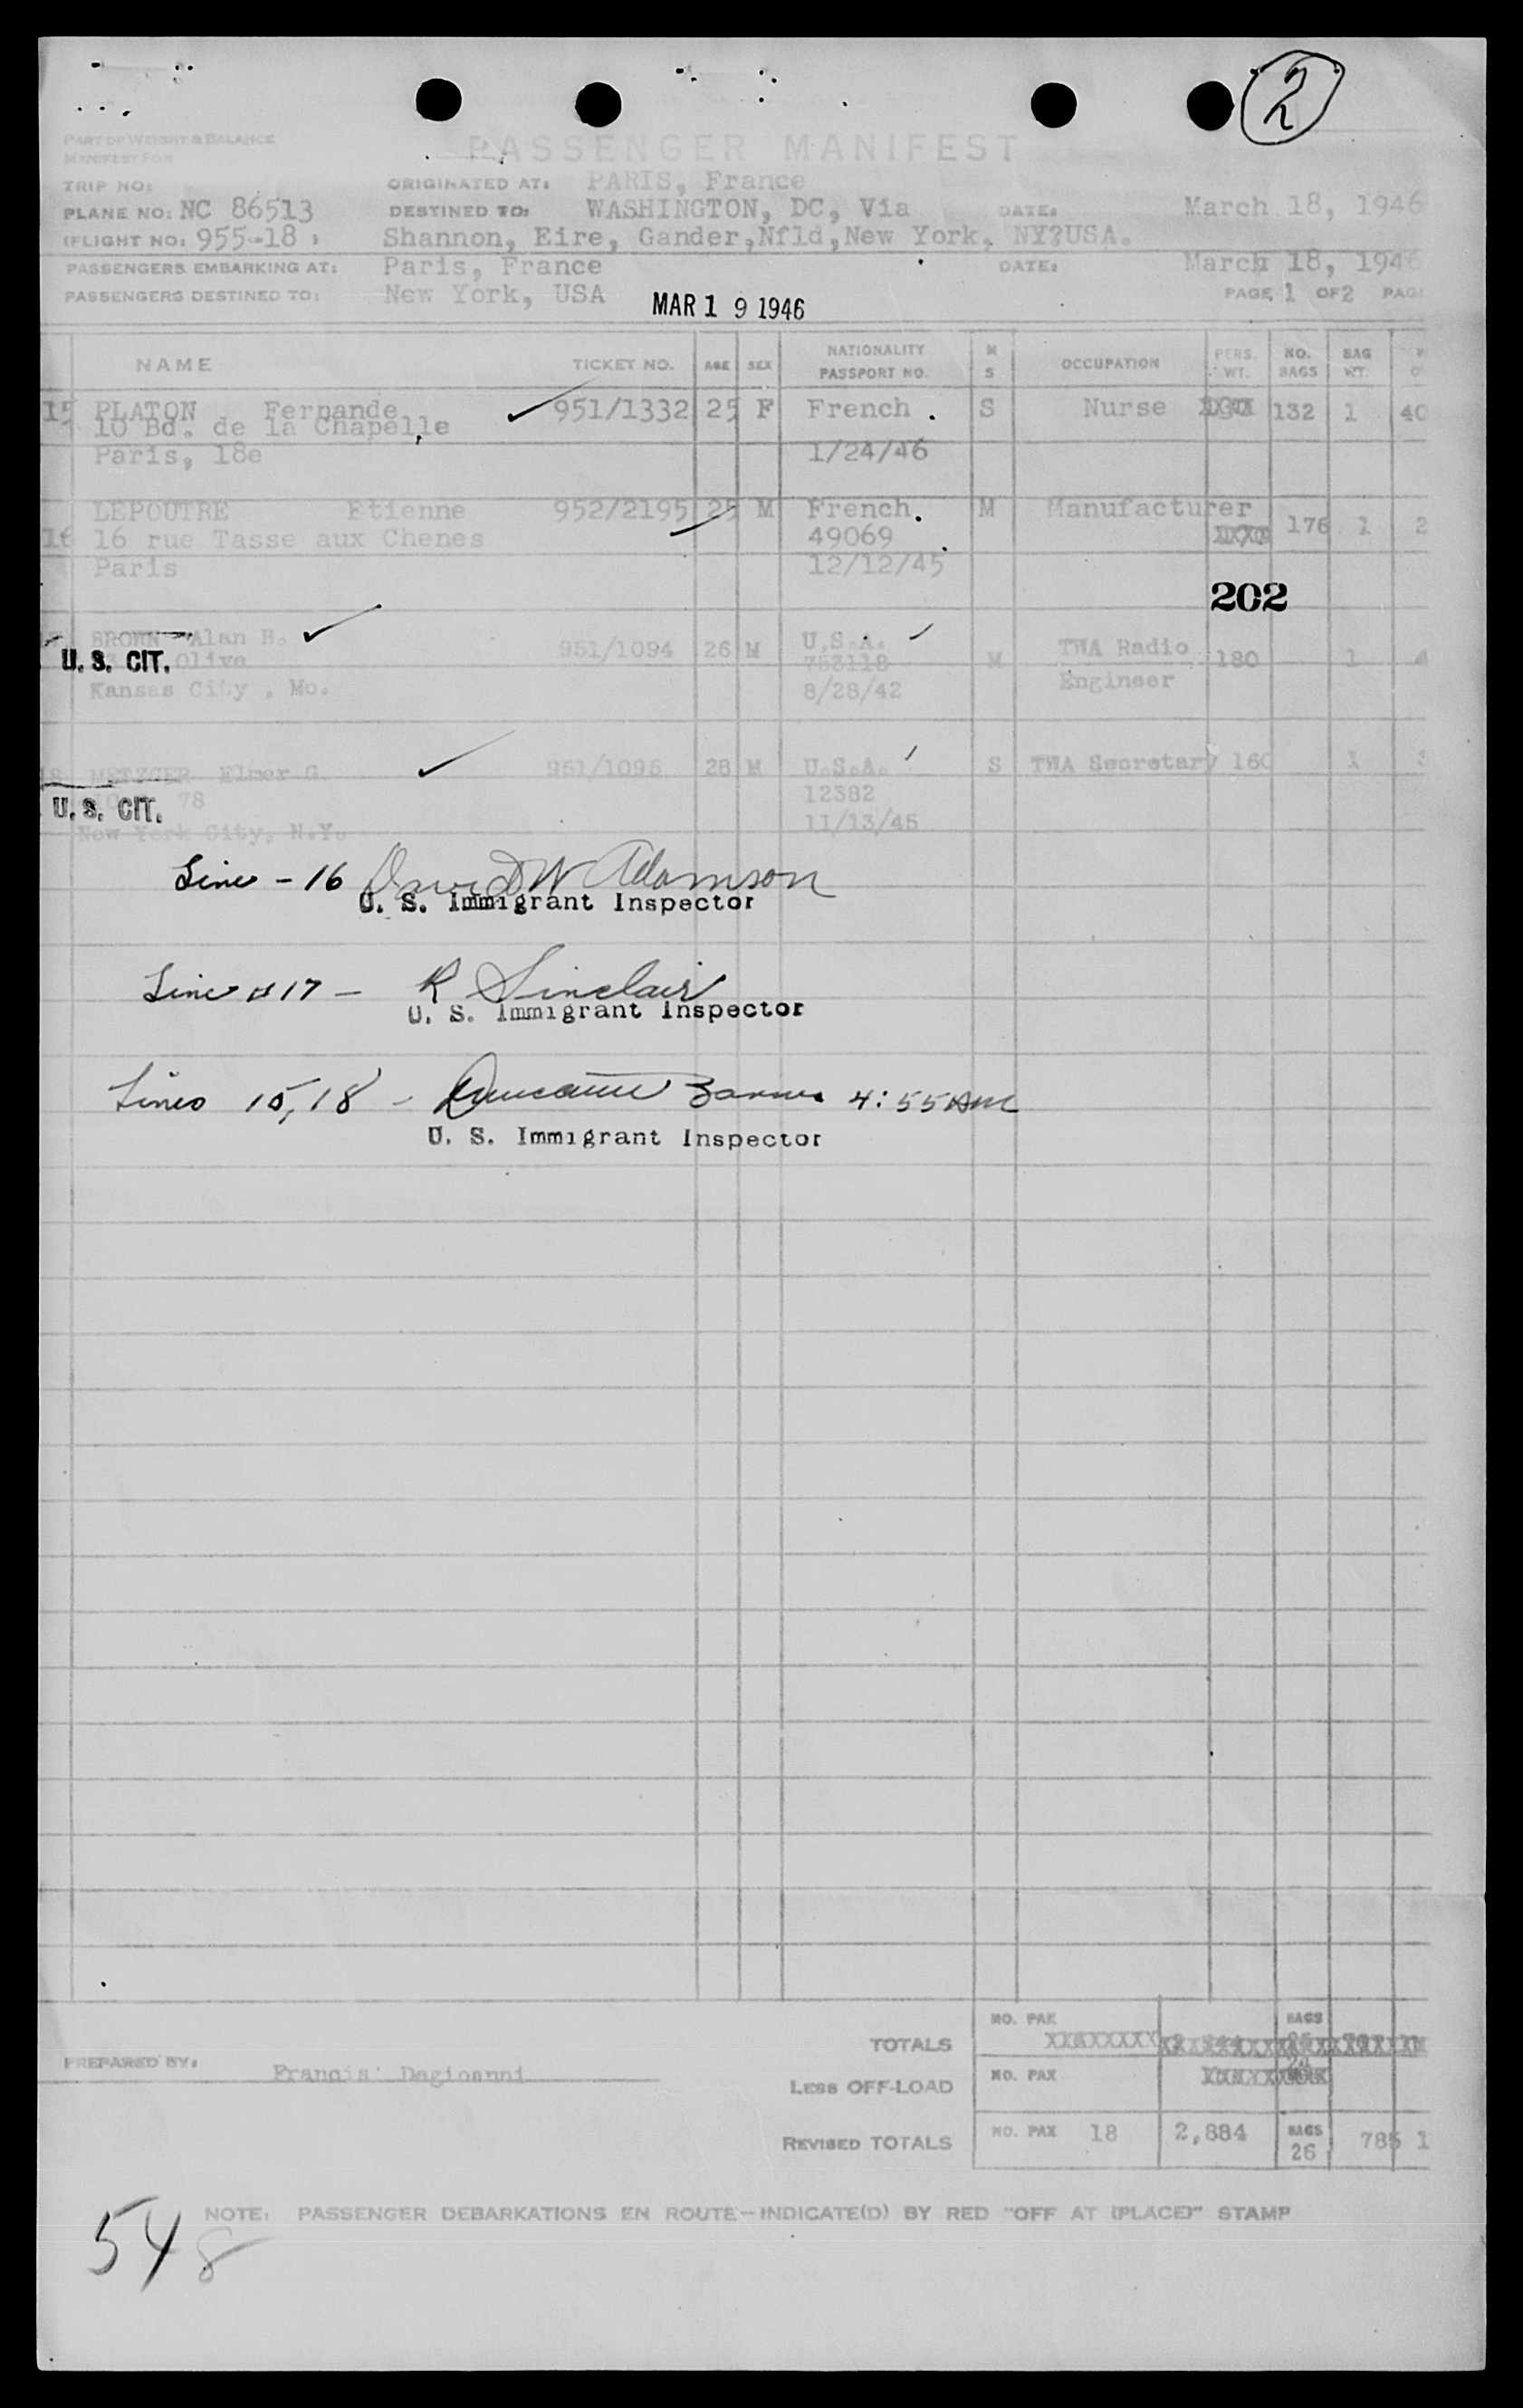 2
PART OF WEIGHT & BALANCE
MANIFEST FOR
PASSENGER MANIFEST
TRIP NO: ORIGINATED AT: PARIS, France
PLANE NO: NC 86513 DESTINED TO: WASHINGTON, DC, Via DATE: March 18, 1946
(FLIGHT NO: 955-18 ) Shannon, Eire, Gander,Nfld,New York, NY?USA.
PASSENGERS EMBARKING AT: Paris, France DATE: March 18, 1946
PASSENGERS DESTINED TO: New York, USA MAR 19 1946 PAGE 1 OF 2 PAG
NAME TICKET NO. AGE SEX NATIONALITY PASSPORT NO. M S OCCUPATION PERS. WT. NO. BAGS BAG WT.
15 PLATON Fernande 951/1332 25 F French . S Nurse 132 1 40
10 Bd. de la Chapelle,
Paris, 18e 1/24/46
LEPOUTRE Etienne 952/2195 25 M French. M Manufacturer
16 16 rue Tasse aux Chenes 49069 176 1 2
Paris 12/12/45
202
BROWN Alan B. 951/1094 26 M U.S.A. M TWA Radio 180 1 4
U. S. CIT. Olive 753118
Kansas City , Mo. 8/28/42 Engineer
18 METZGER Elmer G. 951/1096 28 M U.S.A. S TWA Secretary 160 1 3
U. S. CIT. 78 12382
New York City, N.Y. 11/13/45
Line - 16 David W Adamson
U. S. Immigrant Inspector
Line #17 - R Sinclair
U. S. Immigrant Inspector
Lines 15, 18 - 4:55 AM
U. S. Immigrant Inspector
TOTALS NO. PAX BAGS
PREPARED BY: Francis Dagioanni
LESS OFF-LOAD NO. PAX
REVISED TOTALS NO. PAX 18 2,884 BAGS 26 785 1
NOTE: PASSENGER DEBARKATIONS EN ROUTE—INDICATE(D) BY RED "OFF AT (PLACE)" STAMP
548